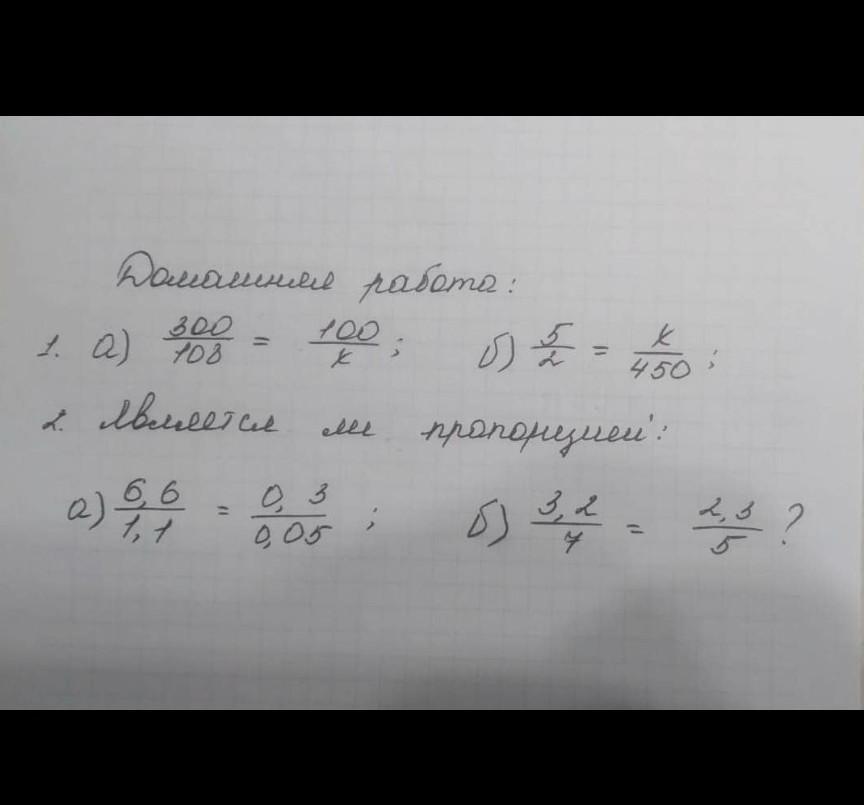 Домашняя работа:
1. а) 300/108 = 100/x ; б) 5/2 = x/450 ;
2. Является ли пропорцией:
а) 6,6/1,1 = 0,3/0,05 ; б) 3,2/7 = 2,3/5 ?